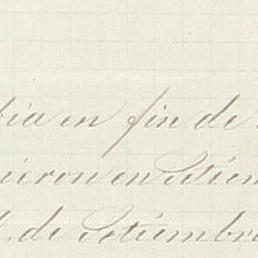 bia en fin de
ieron en Setiem
de Setiembre